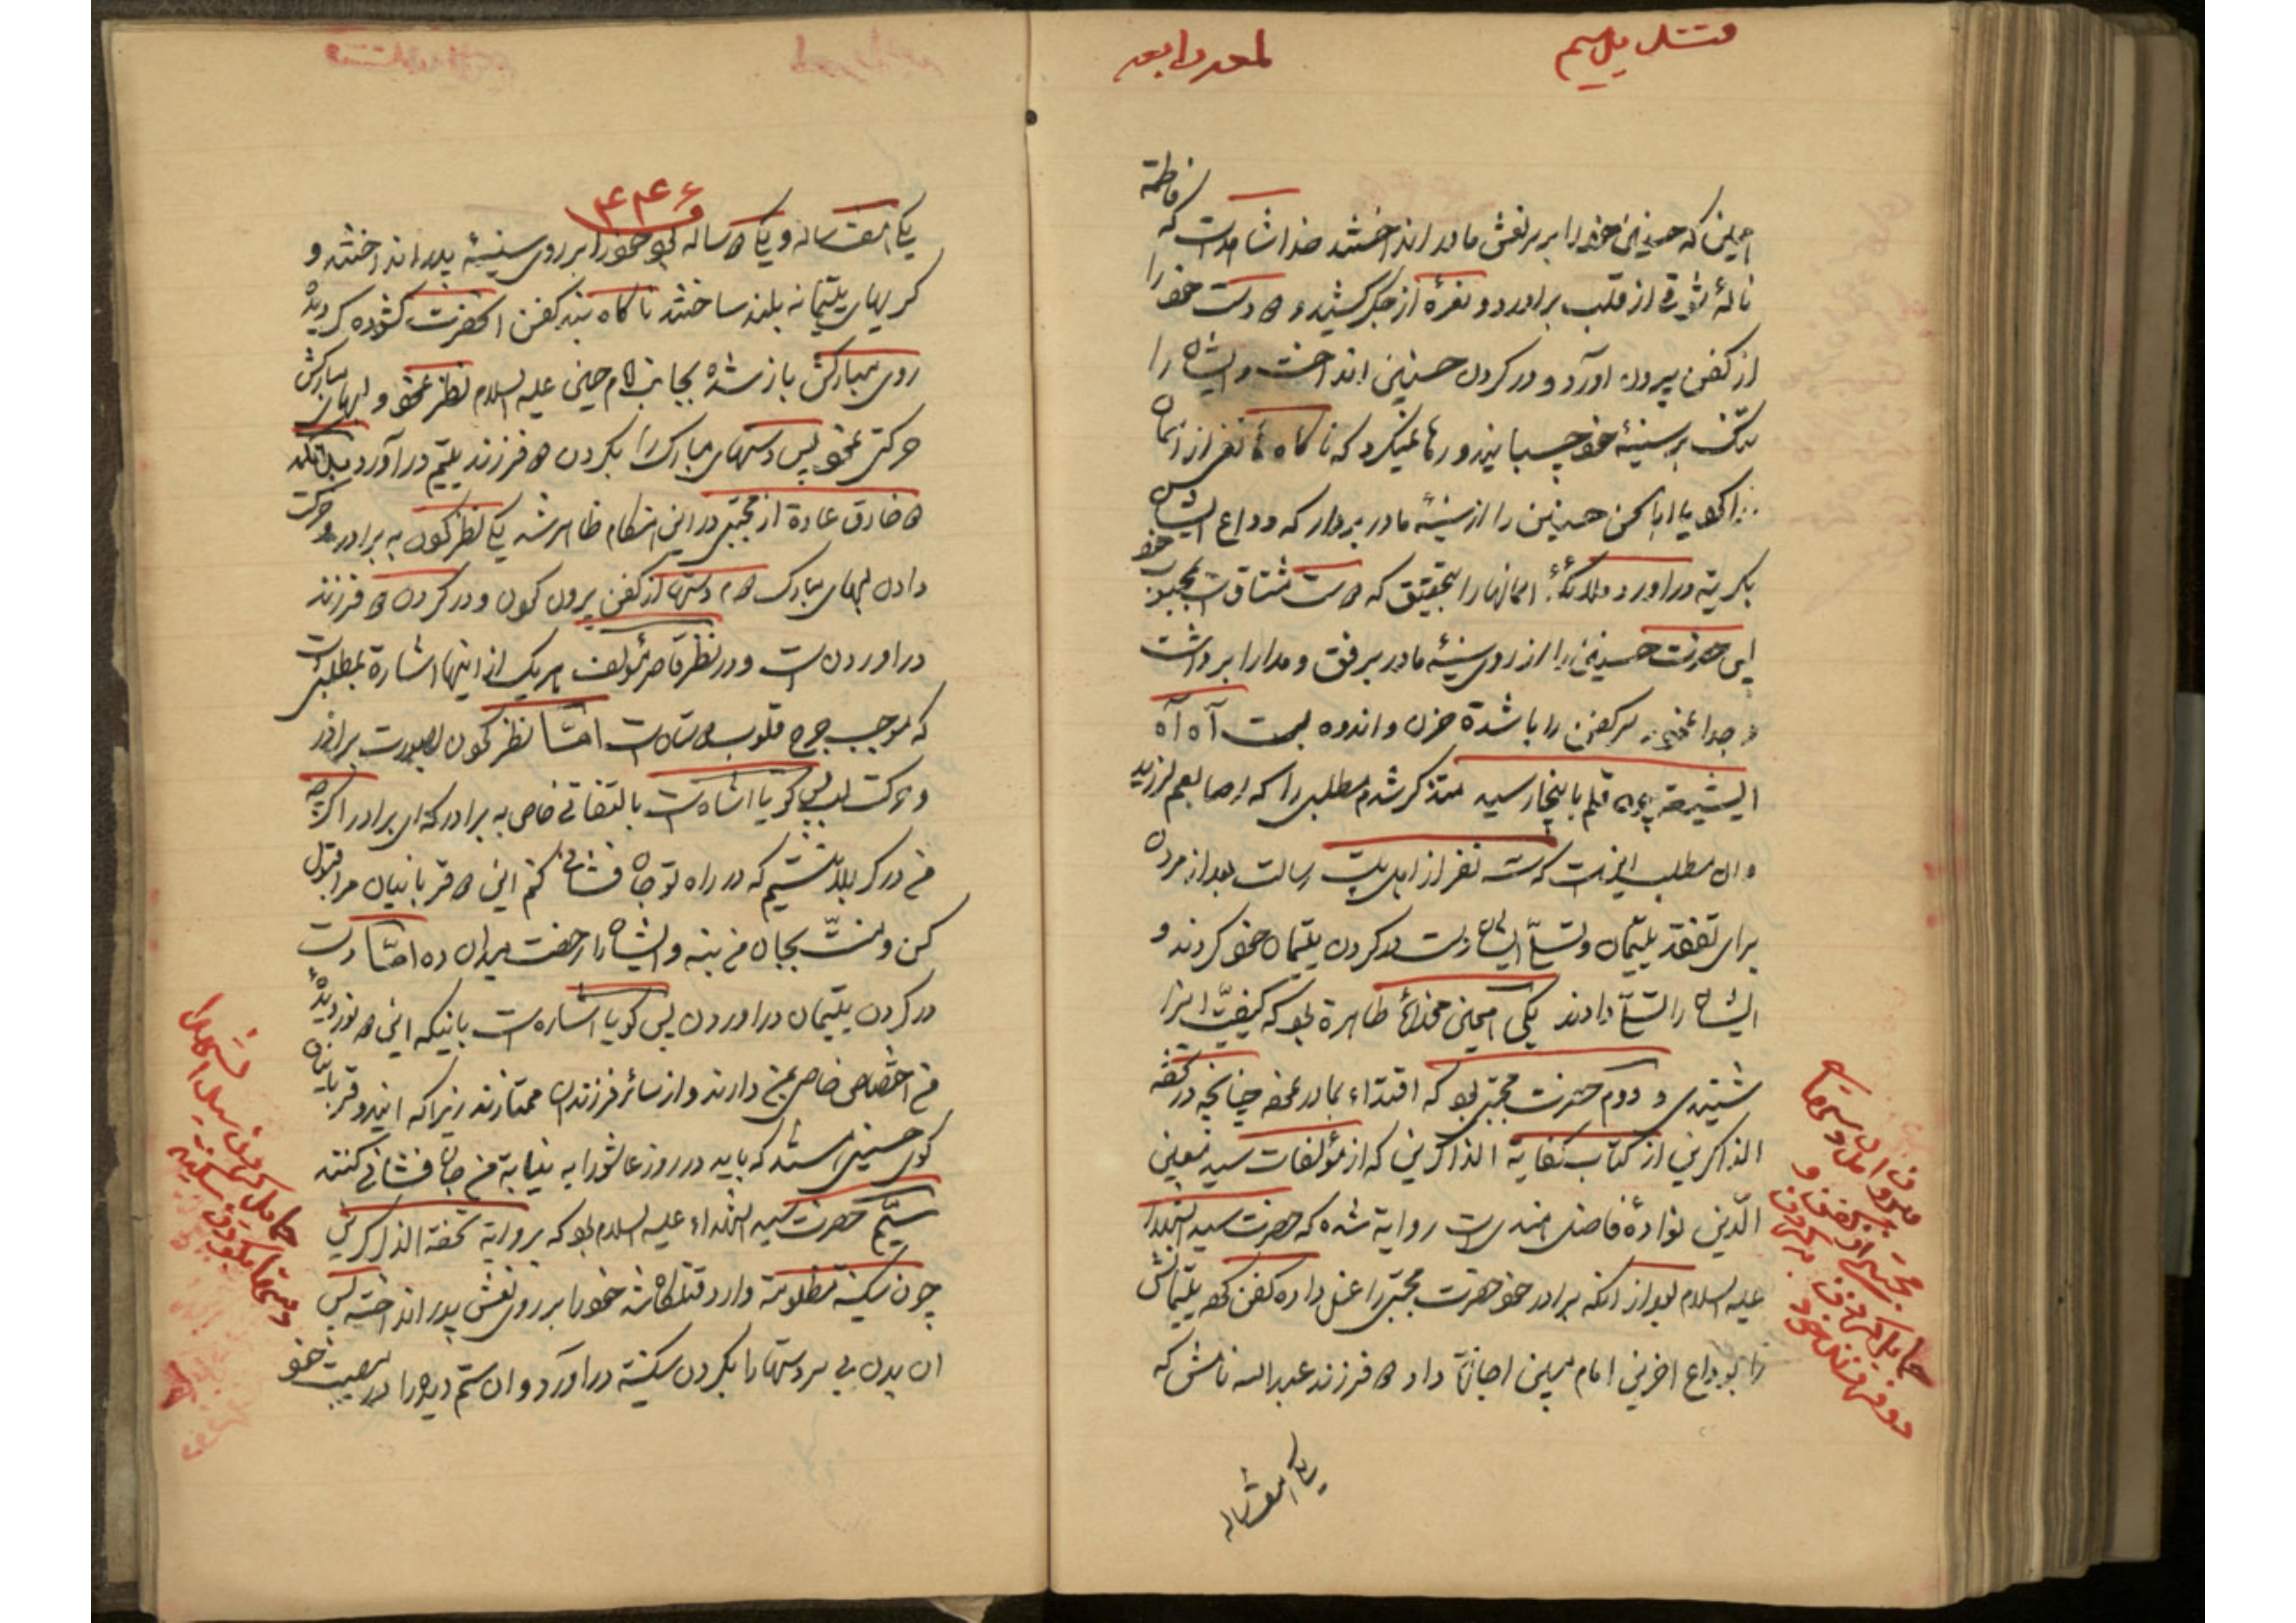 لمعه رابعه
فاطمه
همین که حسنین خود را بر نعش مادر انداختند خدا شاهد است که
ناله شوقی از قلب برآورد و نعره از جگر کشید و دو دست خود را
از کفن بیرون آورد و در گردن حسنین انداخت و ایشان را
تنگ بر سینه خود چسبانید و رها نمیکرد که ناگاه از آسمان
یا ابا الحسن حسنین را از سینه مادر بردار که وداع ایشان
بگریه درآورد ملائکه آسمانها را بتحقیق که دوست مشتاق است بمحبوب خود
پس حضرت حسنین را از روی سینه مادر برفق و مدارا برداشت
و جدا نمود و سر کفن را با شدة حزن و اندوه بست آه آه
ایشیعه چون قلم باینجا رسید متذکر شدم مطلبی را که اصابعم لرزید
و آن مطلب اینست که سه نفر از اهل بیت رسالت بعد از مردن
برای تفقد یتیمان و تسلی ایشان دست در گردن یتیمان خود کردند و
ایشان را تسلی دادند یکی همین مخدره طاهرة بود که کیفیت آنرا
شنیدی و دوم حضرت مجتبی بود که اقتداء بمادر نمود چنانچه در تحفه
الذاکرین از کتاب کفایة الذاکرین که از مؤلفات سید معین
الدین نواده فاضل هندی است روایة شده که حضرت سید الشهداء
علیه السلام بعد از آنکه برادر خود حضرت مجتبی را غسل داده کفن نمود یتیمانش
را بوداع آخرین امام مبین اجازة داد دو فرزند عبدالله نامش که
یکی هفت ساله
۴۴۶
یکی هفت ساله و یکی ده ساله بود خود را بر روی سینه پدر انداختند و
گریهای یتیمانه بلند ساختند ناگاه بند کفن آنحضرت گشوده گردیده
روی مبارکش باز شده بجانب امام حسین علیه السلام نظر نمود و لبهای مبارکش
حرکتی نمود پس دستهای مبارک را بگردن دو فرزند یتیم درآورد
خارق عادة از مجتبی در این هنگام ظاهر شد یکی نظر نمودن به برادر و حرکت
دادن لبهای مبارک دوم دستها از کفن بیرون نمودن و در گردن دو فرزند
درآوردن است و در نظر قاصر مؤلف هر یک از اینها اشارة بمطلبی است
که موجب جرح قلوب دوستان است اما نظر نمودن بصورت برادر
و حرکت لب پس گویا اشاره است بالتفاتی خاص به برادر که ای برادر اگر چه
من در کربلا نیستم که در راه تو جان فشانی کنم این دو قربانیان مرا قبول
کن و منت بجان من بنه و ایشان را رخصت میدان ده اما دست
در گردن یتیمان درآوردن پس گویا اشاره است باینکه این دو نور دیده
من اختصاص خاصی بمن دارند و از سائر فرزندان ممتازند زیرا که ایندو قربانیان
کوی حسینی هستند که باید در روز عاشورا به نیابة من جان فشانی کنند
سیم حضرت سید الشهداء علیه السلام بود که بروایة تحفة الذاکرین
چون سکینه مظلومة وارد قتلگاه شد خود را بر روی نعش پدر انداخت پس
آن بدن بی سر دستها را بگردن سکینة درآورد و آن ستم دیده را در مصیبت خود